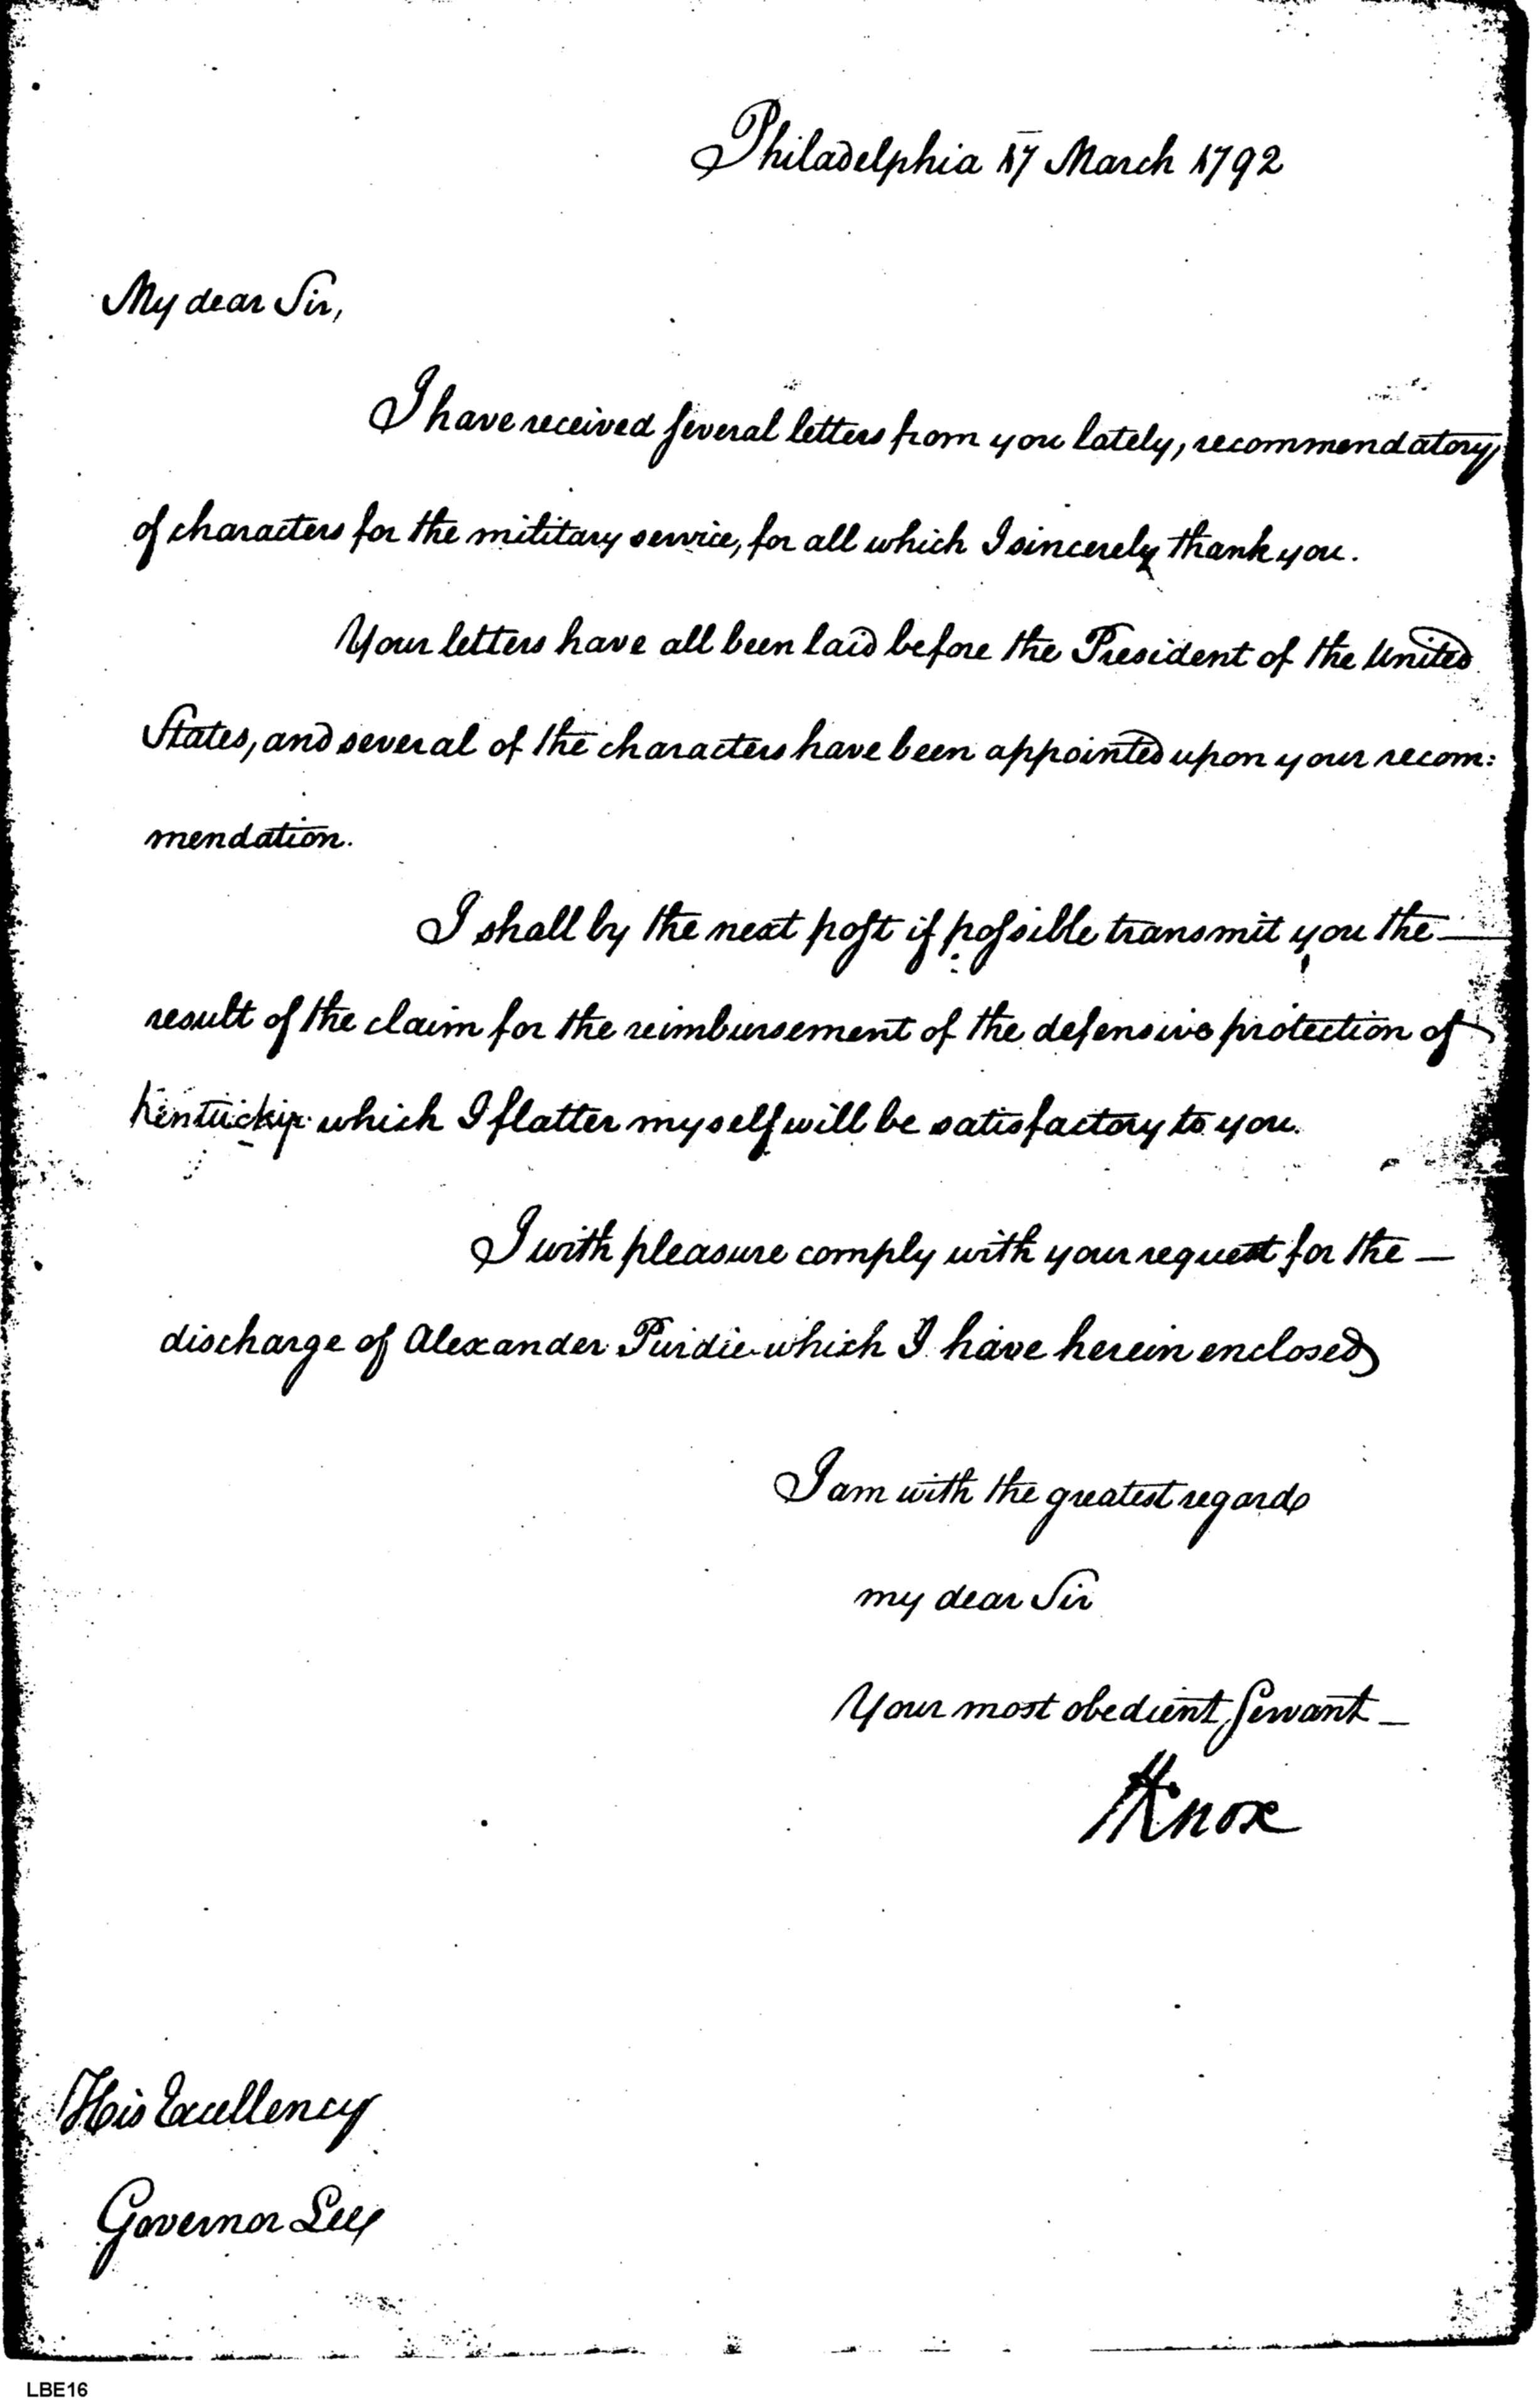 Philadelphia 17 March 1792
My dear Sir,
I have received several letters from you lately, recommendatory
of characters for the military service, for all which I sincerely thank you.
Your letters have all been laid before the President of the United
States, and several of the characters have been appointed upon your recom:
mendation.
I shall by the next post if possible transmit you the —
result of the claim for the reimbursement of the defensive protection of
Kentucky which I flatter myself will be satisfactory to you.
I with pleasure comply with your request for the —
discharge of Alexander Purdie which I have herein enclosed
I am with the greatest regard
my dear Sir
Your most obedient Servant —
HKnox
His Excellency
Governor Lee
LBE16